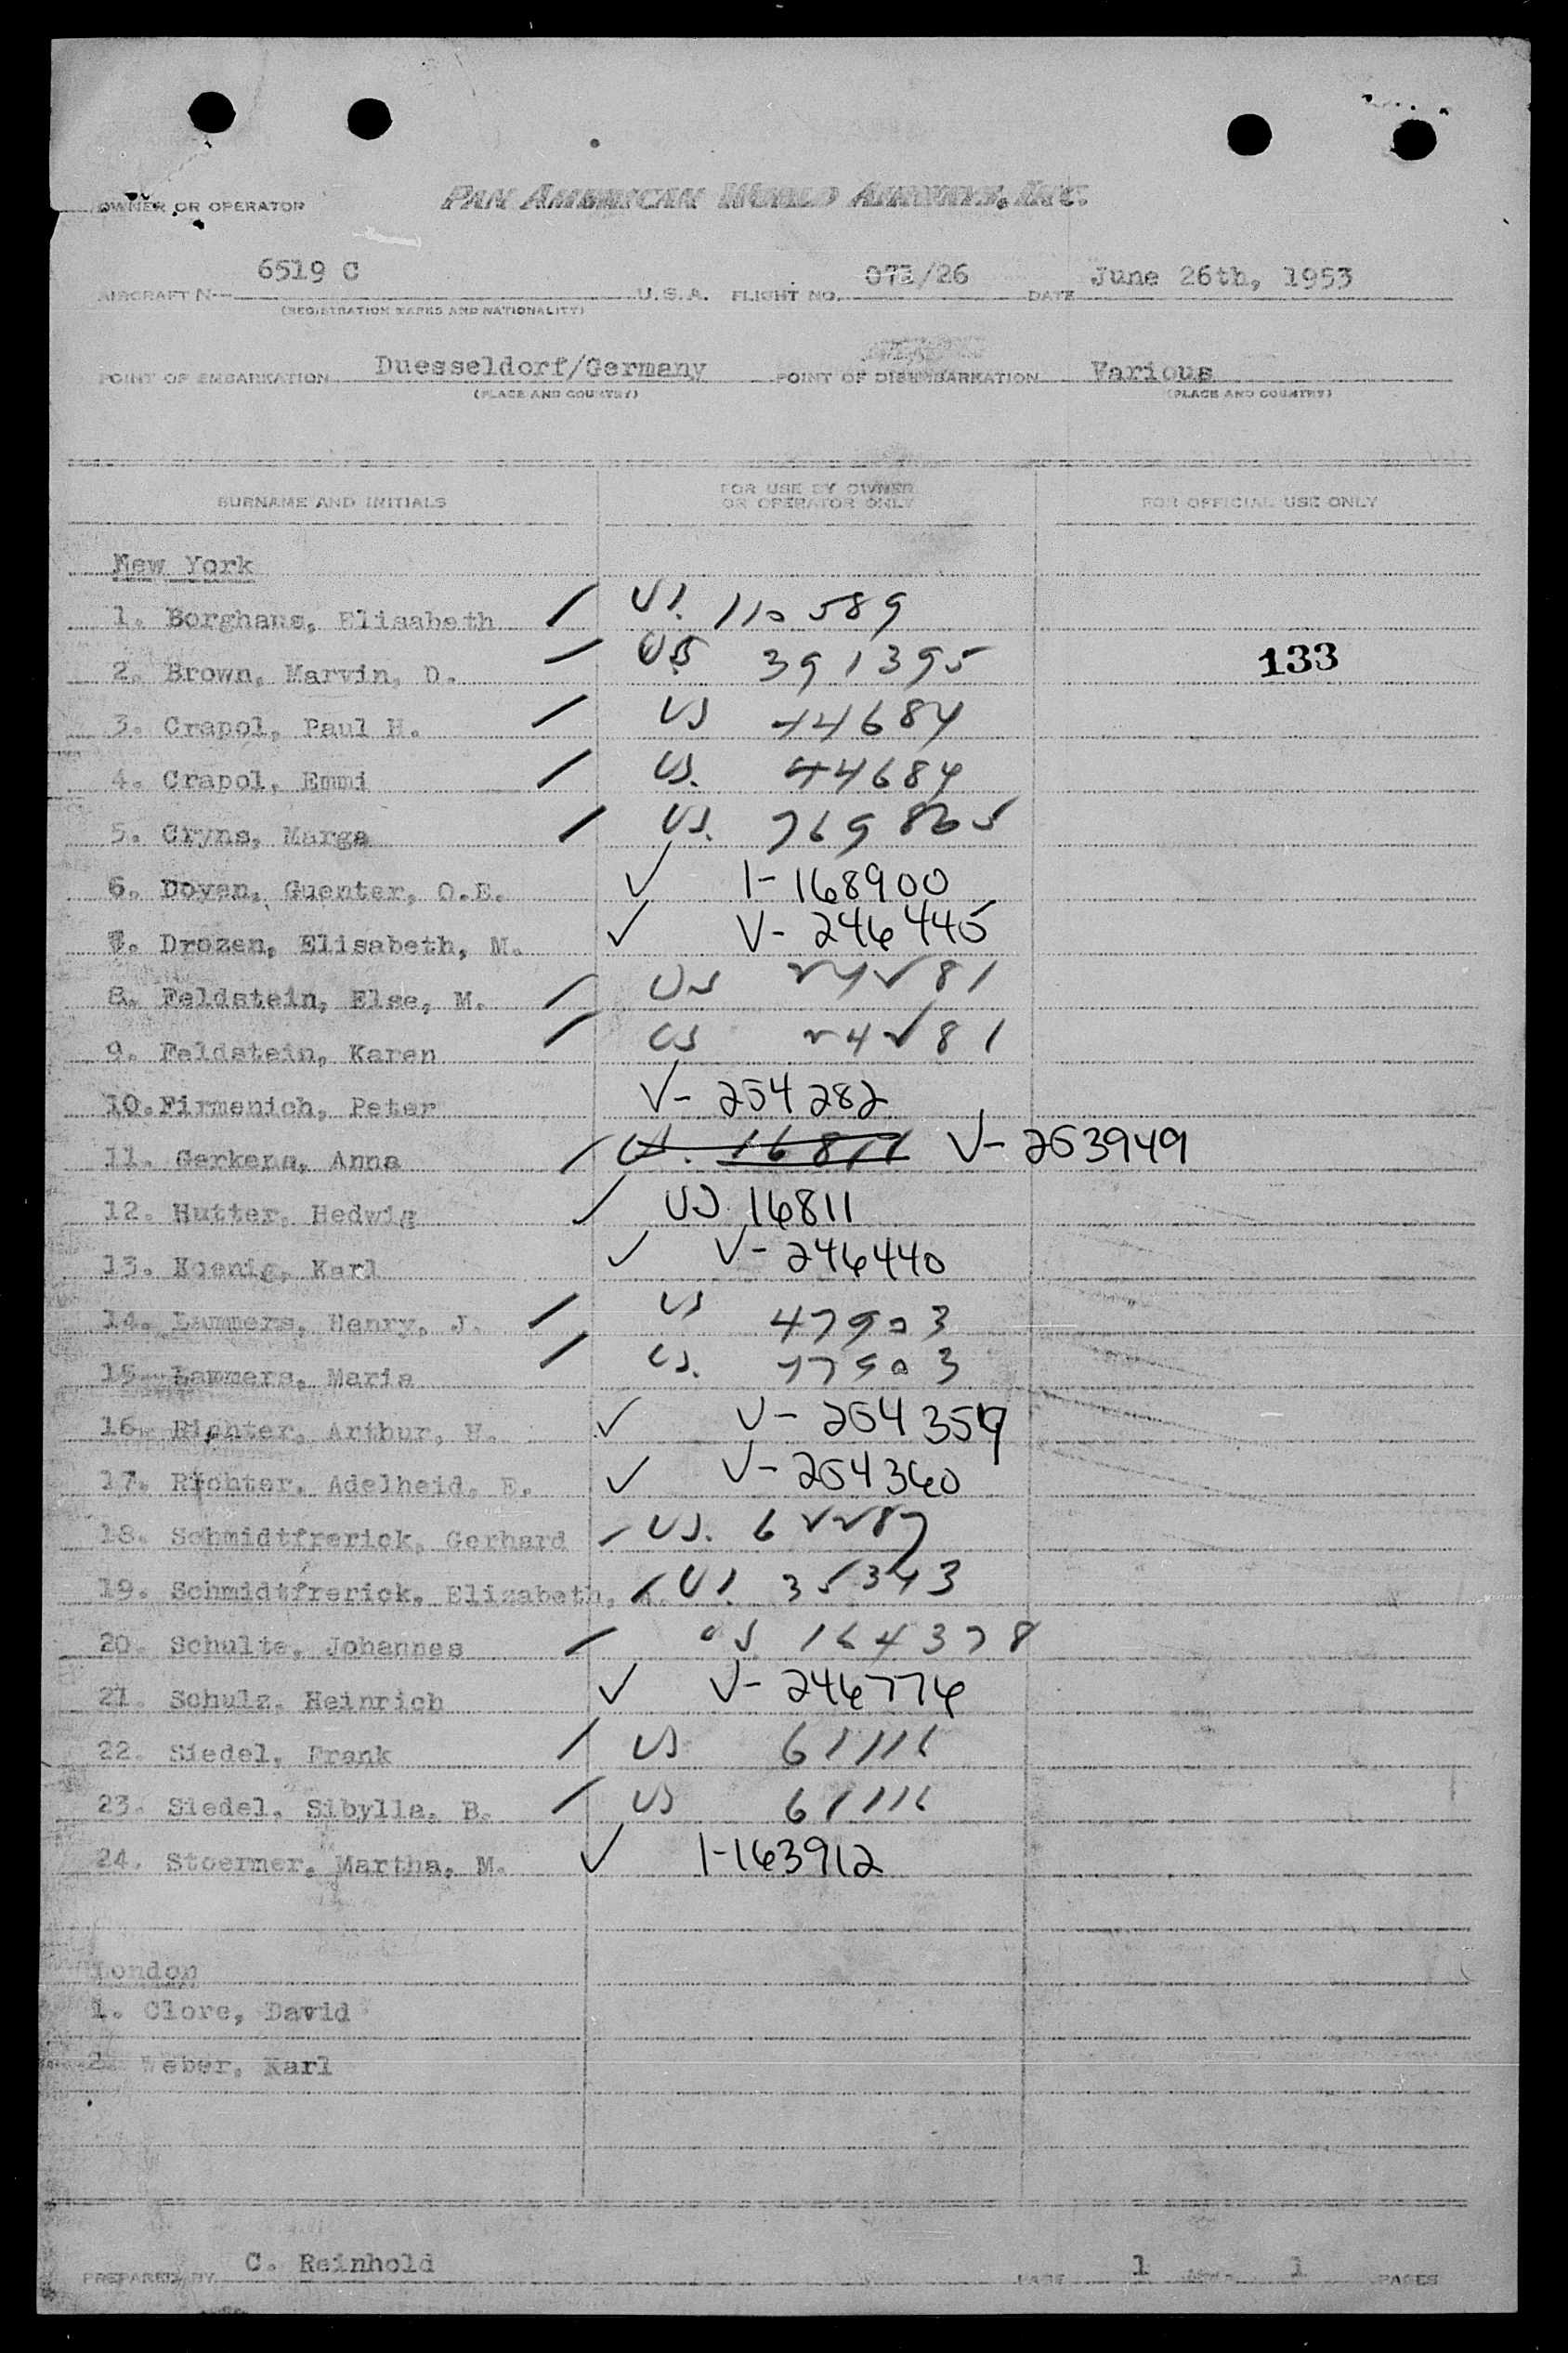 OWNER OR OPERATOR PAN AMERICAN WORLD AIRWAYS, INC.
AIRCRAFT N— 6519 C U.S.A. FLIGHT NO. 072/26 DATE June 26th, 1953
(REGISTRATION MARKS AND NATIONALITY)
POINT OF EMBARKATION Duesseldorf/Germany POINT OF DISEMBARKATION Various
(PLACE AND COUNTRY) (PLACE AND COUNTRY)
SURNAME AND INITIALS FOR USE BY OWNER OR OPERATOR ONLY FOR OFFICIAL USE ONLY
New York
1. Borghans, Elisabeth / US. 110589
2. Brown, Marvin, D. / US 391395 133
3. Crapol, Paul H. / US 44684
4. Crapol, Emmi / US. 44684
5. Cryns, Marga / US. 769865
6. Doyen, Guenter, O.E. ✓ I-168900
7. Drozen, Elisabeth, M. ✓ V-246445
8. Feldstein, Else, M. / US 24281
9. Feldstein, Karen / US 24281
10. Firmenich, Peter V-254282
11. Gerkens, Anna / US. 16811 V-253949
12. Hutter, Hedwig / US 16811
13. Koenig, Karl ✓ V-246440
14. Lammers, Henry, J. / US 47903
15. Lammers, Maria / US. 47903
16. Richter, Arthur, H. ✓ V-254359
17. Richter, Adelheid, E. ✓ V-254360
18. Schmidtfrerick, Gerhard / US. 62287
19. Schmidtfrerick, Elizabeth, / US. 35343
20. Schulte, Johannes / US 164378
21. Schulz, Heinrich ✓ V-246776
22. Siedel, Frank / US 61116
23. Siedel, Sibylla, B. / US 61116
24. Stoermer, Martha, M. ✓ I-163912
London
1. Clore, David
2. Weber, Karl
PREPARED BY C. Reinhold PAGE 1 OF 1 PAGES